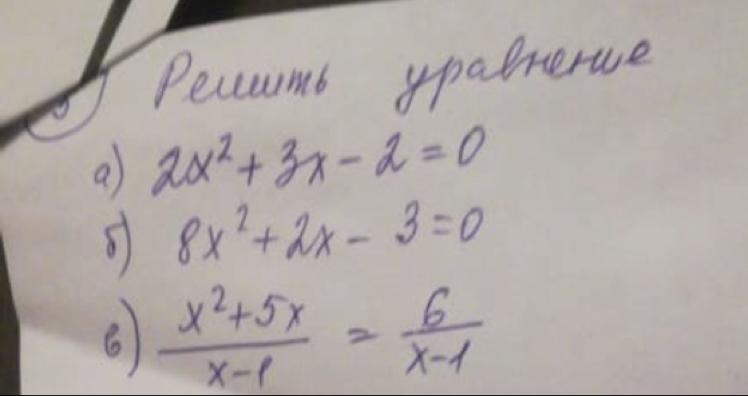 3) Решить уравнение
а) 2x² + 3x - 2 = 0
б) 8x² + 2x - 3 = 0
в) (x² + 5x)/(x - 1) = 6/(x - 1)